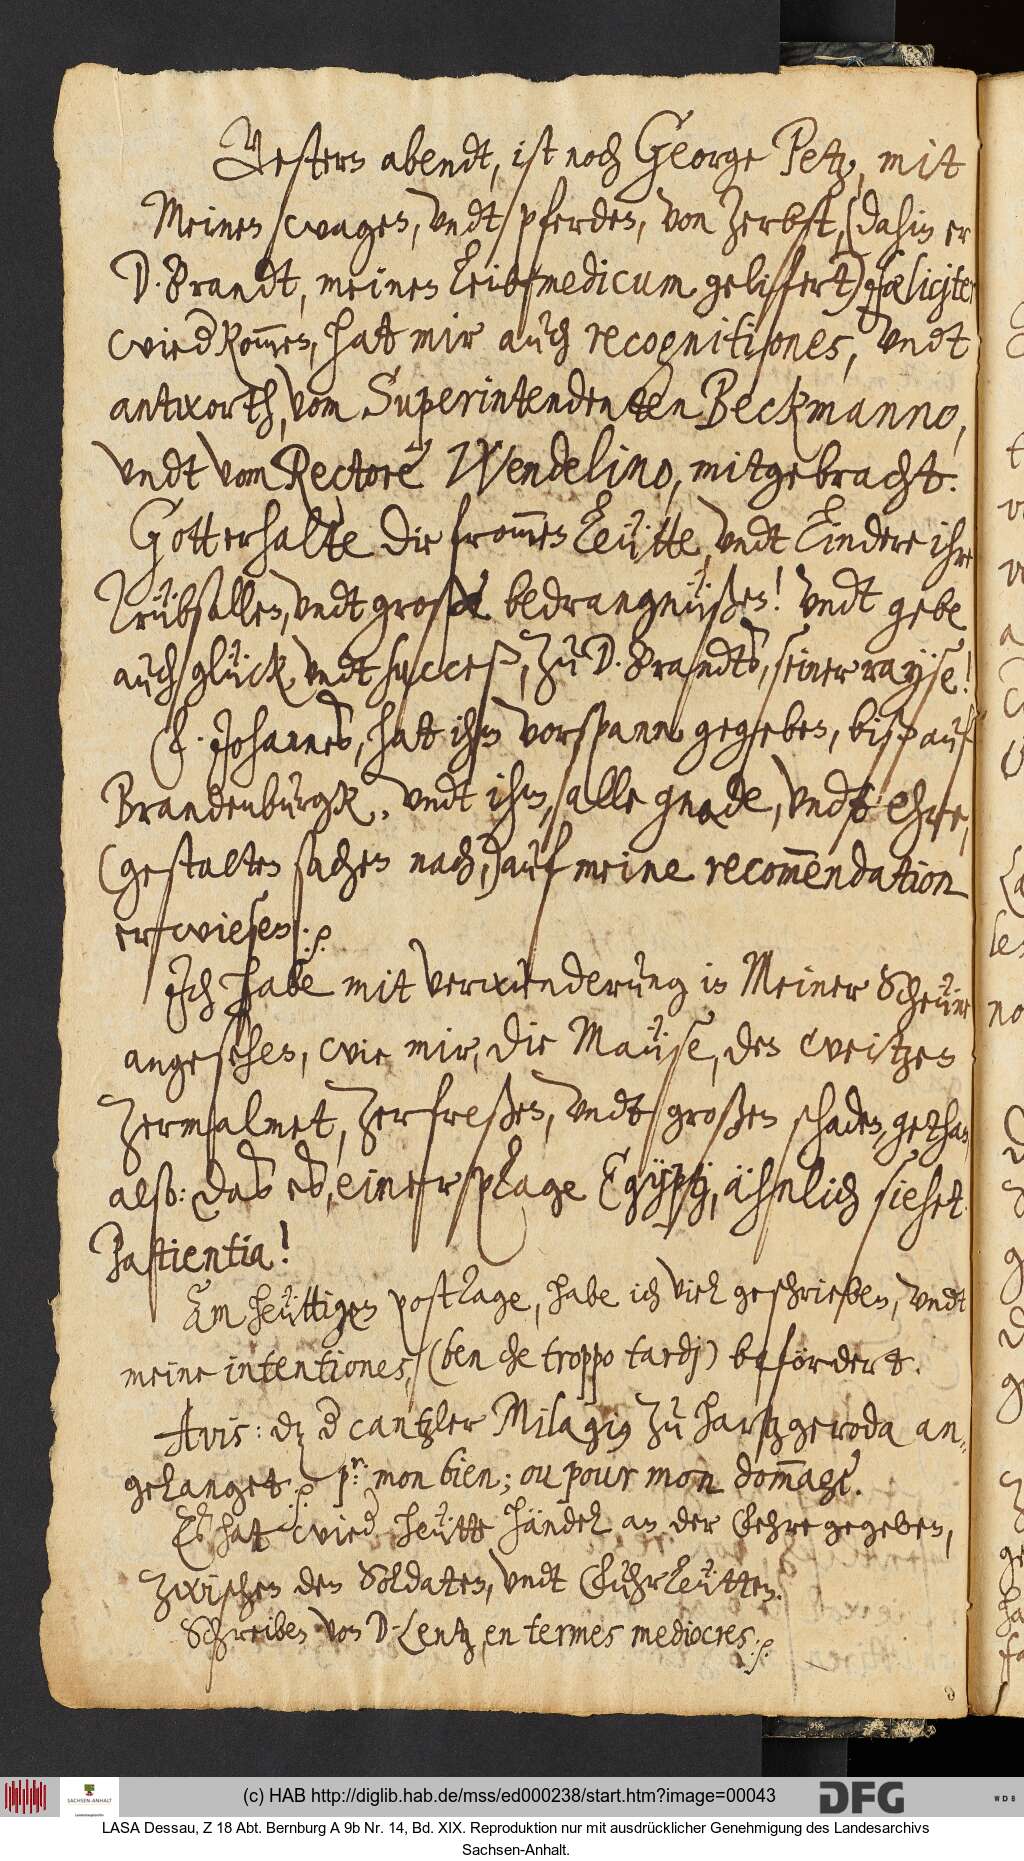 Gestern abendt, ist noch George Petz, mit
Meinen wagen, vndt pferden, von Zerbst, (dahin er
D. Brandt, meinen Leibmedicum geliffert) fæliciter
wied kom̅en, hatt mir auch recognitiones, vndt
antworth, vom Superintendenten Beckmanno,
vndt vom Rectore Wendelino, mitgebracht.
Gott erhalte die from̅en Leütte, vndt lindere ihre
Trübsallen, vndt große bedrangnüßen! vndt gebe
auch glück, vndt succeß, zu D. Brandts, seiner rayse!
E. Johannes, hatt ihm vorspann gegeben, biß auf
Brandenburgk, vndt ihm, alle gnade, vndt ehre,
(gestalten sachen nach,) auf meine recom̅endation
erwiesen. p
Ich habe mit verwunderung in Meiner Scheüne
angesehen, wie mir, die Maüse, den weitzen
zermalmet, zerfreßen, vndt großen schaden, gethan,
also: das es, einer plage Egÿptj, ähnlich siehet.
Patientia!
Am heüttigen posttage, habe ich viel geschrieben, vndt
meine intentiones, (ben che troppo tardj) befördert.
Avis: dz d cantzler Milagiꝰ zu hartzgeroda an-
gelanget. p pr: mon bien; ou pour mon dom̅age.
Es hat wied heütte händel an der Fehre gegeben,
zwischen den Soldaten, vndt Fuhrleütten.
Schreiben von D. Lentz, en termes mediocres. p
(c) HAB http://diglib.hab.de/mss/ed000238/start.htm?image=00043
SACHSEN-ANHALT
DFG
WDB
LASA Dessau, Z 18 Abt. Bernburg A 9b Nr. 14, Bd. XIX. Reproduktion nur mit ausdrücklicher Genehmigung des Landesarchivs
Sachsen-Anhalt.